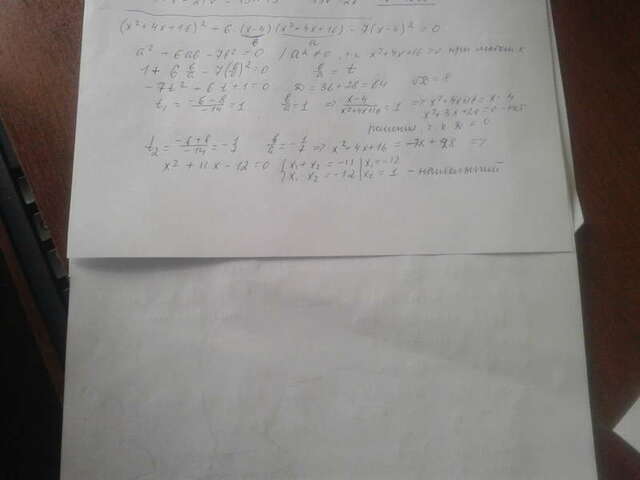 (x²+4x+16)² + 6·(x-4)(x²+4x+16) - 7(x-4)² = 0
b a
a² + 6ab - 7b² = 0 / a² ≠ 0, т.к. x²+4x+16 при любом x
1 + 6 b/a - 7(b/a)² = 0 b/a = t
-7t² + 6t + 1 = 0 D = 36+28 = 64 √D = 8
t₁ = (-6-8)/(-14) = 1 b/a = 1 ⇒ (x-4)/(x²+4x+16) = 1 ⇒ x²+4x+16 = x-4
x²+3x+20 = 0 - нет
решений, т.к. D < 0
t₂ = (-6+8)/(-14) = -1/7 b/a = -1/7 ⇒ x²+4x+16 = -7x+28 ⇒
x² + 11x - 12 = 0 x₁+x₂ = -11 x₁ = -12
x₁·x₂ = -12 x₂ = 1 -